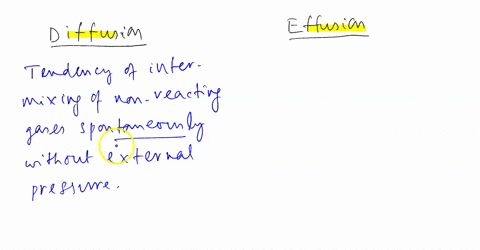 Diffusion
Effusion
Tendency of inter-
mixing of non-reacting
gases spontaneously
without external
pressure.